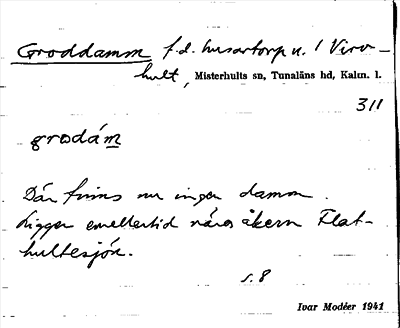 Groddamm f.d. husartorp u. / Viro-
hult, Misterhults sn, Tunaläns hd, Kalm. l.
311
grodám
Där finns nu ingen damm.
Ligger emellertid nära åkern Flat-
hultesjön.
s. 8
Ivar Modéer 1941